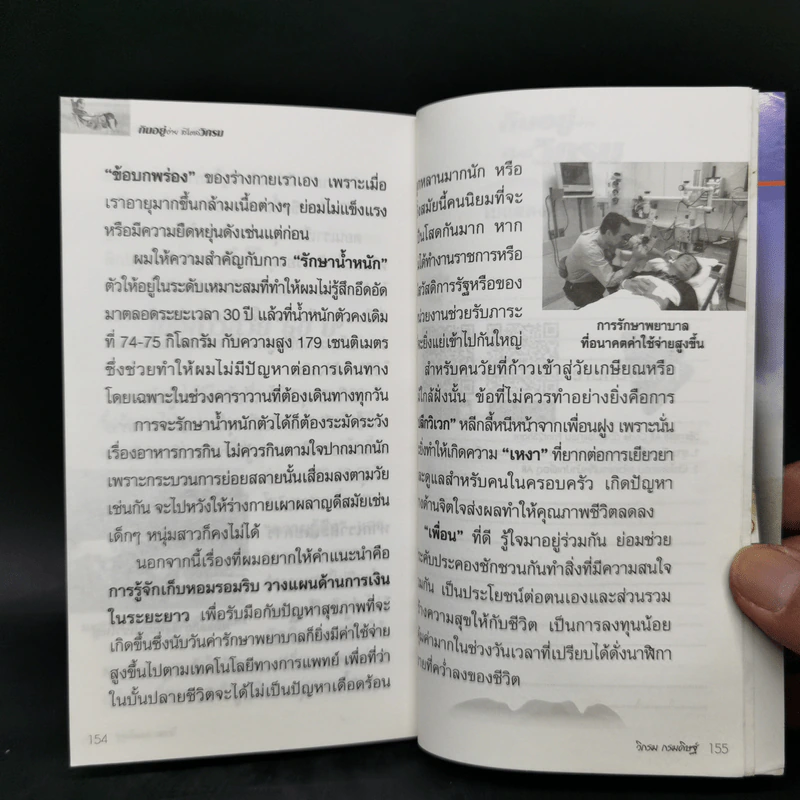 กินอยู่อย่าง ชีวิตกรม
“ข้อบกพร่อง” ของร่างกายเราเอง เพราะเมื่อ
เราอายุมากขึ้นกล้ามเนื้อต่างๆ ย่อมไม่แข็งแรง
หรือมีความยืดหยุ่นดังเช่นแต่ก่อน
ผมให้ความสำคัญกับการ “รักษาน้ำหนัก”
ตัวให้อยู่ในระดับเหมาะสมที่ทำให้ผมไม่รู้สึกอึดอัด
มาตลอดระยะเวลา 30 ปี แล้วที่น้ำหนักตัวคงเดิม
ที่ 74-75 กิโลกรัม กับความสูง 179 เซนติเมตร
ซึ่งช่วยทำให้ผมไม่มีปัญหาต่อการเดินทาง
โดยเฉพาะในช่วงคาราวานที่ต้องเดินทางทุกวัน
การจะรักษาน้ำหนักตัวได้ก็ต้องระมัดระวัง
เรื่องอาหารการกิน ไม่ควรกินตามใจปากมากนัก
เพราะกระบวนการย่อยสลายนั้นเสื่อมลงตามวัย
เช่นกัน จะไปหวังให้ร่างกายเผาผลาญดีสมัยเช่น
เด็กๆ หนุ่มสาวก็คงไม่ได้
นอกจากนี้เรื่องที่ผมอยากให้คำแนะนำคือ
การรู้จักเก็บหอมรอมริบ วางแผนด้านการเงิน
ในระยะยาว เพื่อรับมือกับปัญหาสุขภาพที่จะ
เกิดขึ้นซึ่งนับวันค่ารักษาพยาบาลก็ยิ่งมีค่าใช้จ่าย
สูงขึ้นไปตามเทคโนโลยีทางการแพทย์ เพื่อที่ว่า
ในบั้นปลายชีวิตจะได้ไม่เป็นปัญหาเดือดร้อน
154
หลานมากนัก หรือ
สมัยนี้คนนิยมที่จะ
เป็นโสดกันมาก หาก
ได้ทำงานราชการหรือ
สวัสดิการรัฐหรือของ
หน่วยงานช่วยรับภาระ
จะยิ่งแย่เข้าไปกันใหญ่
การรักษาพยาบาล
ที่อนาคตค่าใช้จ่ายสูงขึ้น
สำหรับคนวัยที่ก้าวเข้าสู่วัยเกษียณหรือ
ใกล้ฝั่งนั้น ข้อที่ไม่ควรทำอย่างยิ่งคือการ
ปลีกวิเวก” หลีกลี้หนีหน้าจากเพื่อนฝูง เพราะนั่น
จะยิ่งทำให้เกิดความ “เหงา” ที่ยากต่อการเยียวยา
และดูแลสำหรับคนในครอบครัว เกิดปัญหา
ด้านจิตใจส่งผลทำให้คุณภาพชีวิตลดลง
“เพื่อน” ที่ดี รู้ใจมาอยู่ร่วมกัน ย่อมช่วย
ประคองชักชวนกันทำสิ่งที่มีความสนใจ
กัน เป็นประโยชน์ต่อตนเองและส่วนรวม
สร้างความสุขให้กับชีวิต เป็นการลงทุนน้อย
คุ้มค่ามากในช่วงวันเวลาที่เปรียบได้ดั่งนาฬิกา
ทรายที่คว่ำลงของชีวิต
วิกรม กรมดิษฐ์ 155